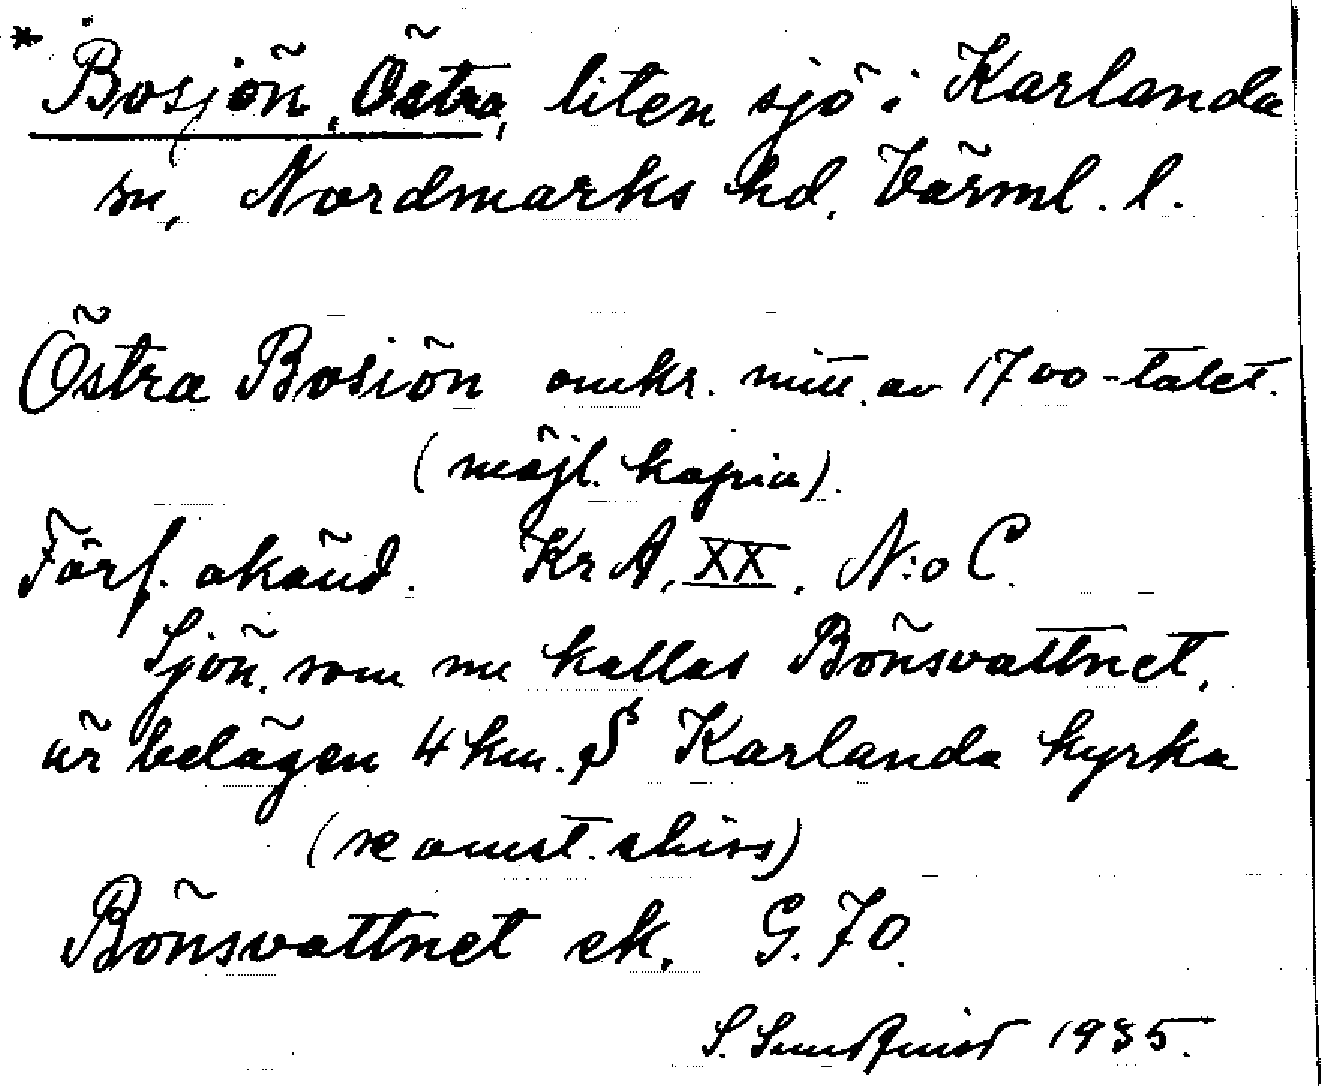 * Bosjön, Östra, liten sjö i Karlanda
sn, Nordmarks hd. Värml. l.
Östra Bosiön omkr. mitt. av 1700-talet.
(möjl. kopia).
Förf. okänd. KrA, XX, N:o C.
Sjön, som nu kallas Bönsvattnet,
är belägen 4 km. S Karlanda kyrka
(se omst. skiss)
Bönsvattnet ek. G. 70.
S. Sundqvist 1935.